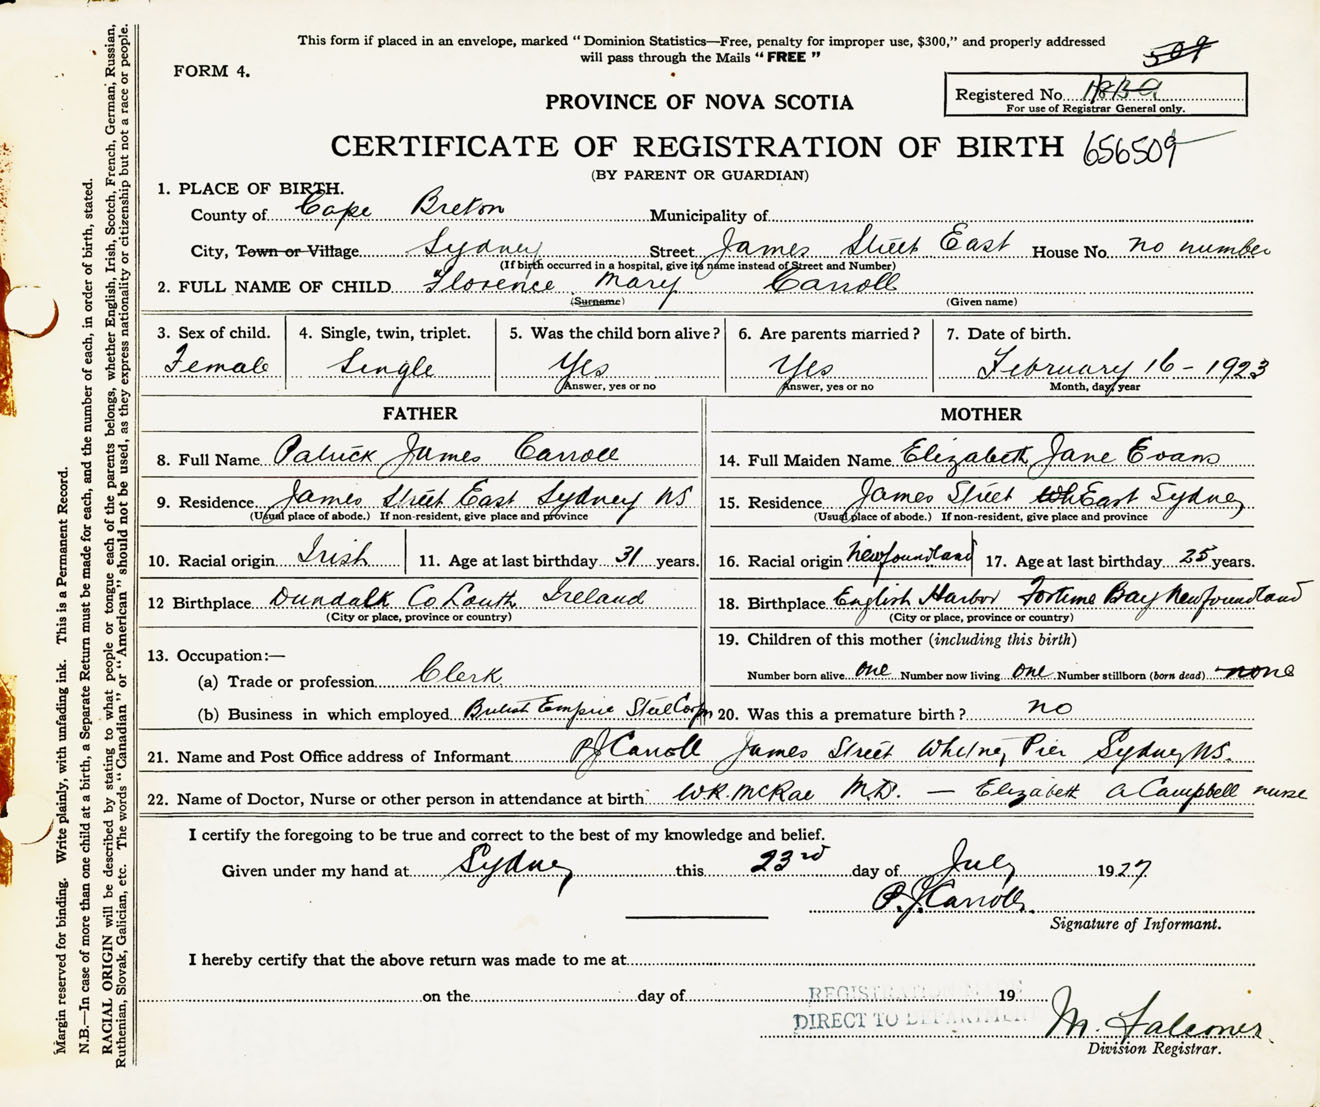 This form if placed in an envelope, marked "Dominion Statistics—Free, penalty for improper use, $300," and properly addressed
will pass through the Mails "FREE"
509
FORM 4.
Registered No.
For use of Registrar General only.
PROVINCE OF NOVA SCOTIA
CERTIFICATE OF REGISTRATION OF BIRTH 656509
(BY PARENT OR GUARDIAN)
1. PLACE OF BIRTH.
County of Cape Breton Municipality of
City, Town or Village Sydney Street James Street East House No. no number
(If birth occurred in a hospital, give its name instead of Street and Number)
2. FULL NAME OF CHILD Florence Mary Carroll
(Surname) (Given name)
3. Sex of child. 4. Single, twin, triplet. 5. Was the child born alive? 6. Are parents married? 7. Date of birth.
Female Single Yes Yes February 16 - 1923
Answer, yes or no Answer, yes or no Month, day, year
FATHER MOTHER
8. Full Name Patrick James Carroll 14. Full Maiden Name Elizabeth Jane Evans
9. Residence James Street East Sydney NS 15. Residence James Street East Sydney
(Usual place of abode.) If non-resident, give place and province (Usual place of abode.) If non-resident, give place and province
10. Racial origin Irish 11. Age at last birthday 31 years. 16. Racial origin Newfoundland 17. Age at last birthday 25 years.
12 Birthplace Dundalk Co Louth Ireland 18. Birthplace English Harbor Fortune Bay Newfoundland
(City or place, province or country) (City or place, province or country)
19. Children of this mother (including this birth)
13. Occupation:—
(a) Trade or profession Clerk Number born alive one Number now living one Number stillborn (born dead) none
(b) Business in which employed British Empire Steel Corpn 20. Was this a premature birth? no
21. Name and Post Office address of Informant PJ Carroll James Street Whitney Pier Sydney NS.
22. Name of Doctor, Nurse or other person in attendance at birth W.R. McRae M.D. — Elizabeth A Campbell nurse
I certify the foregoing to be true and correct to the best of my knowledge and belief.
Given under my hand at Sydney this 23rd day of July 1927
P.J. Carroll
Signature of Informant.
I hereby certify that the above return was made to me at
on the day of 19
REGISTRATION MADE
DIRECT TO DEPARTMENT
M. Falconer
Division Registrar.
Margin reserved for binding. Write plainly, with unfading ink. This is a Permanent Record.
N.B.—In case of more than one child at a birth, a Separate Return must be made for each, and the number of each, in order of birth, stated.
RACIAL ORIGIN will be described by stating to what people or tongue each of the parents belongs, whether English, Irish, Scotch, French, German, Russian,
Ruthenian, Slovak, Galician, etc. The words "Canadian" or "American" should not be used, as they express nationality or citizenship but not a race or people.